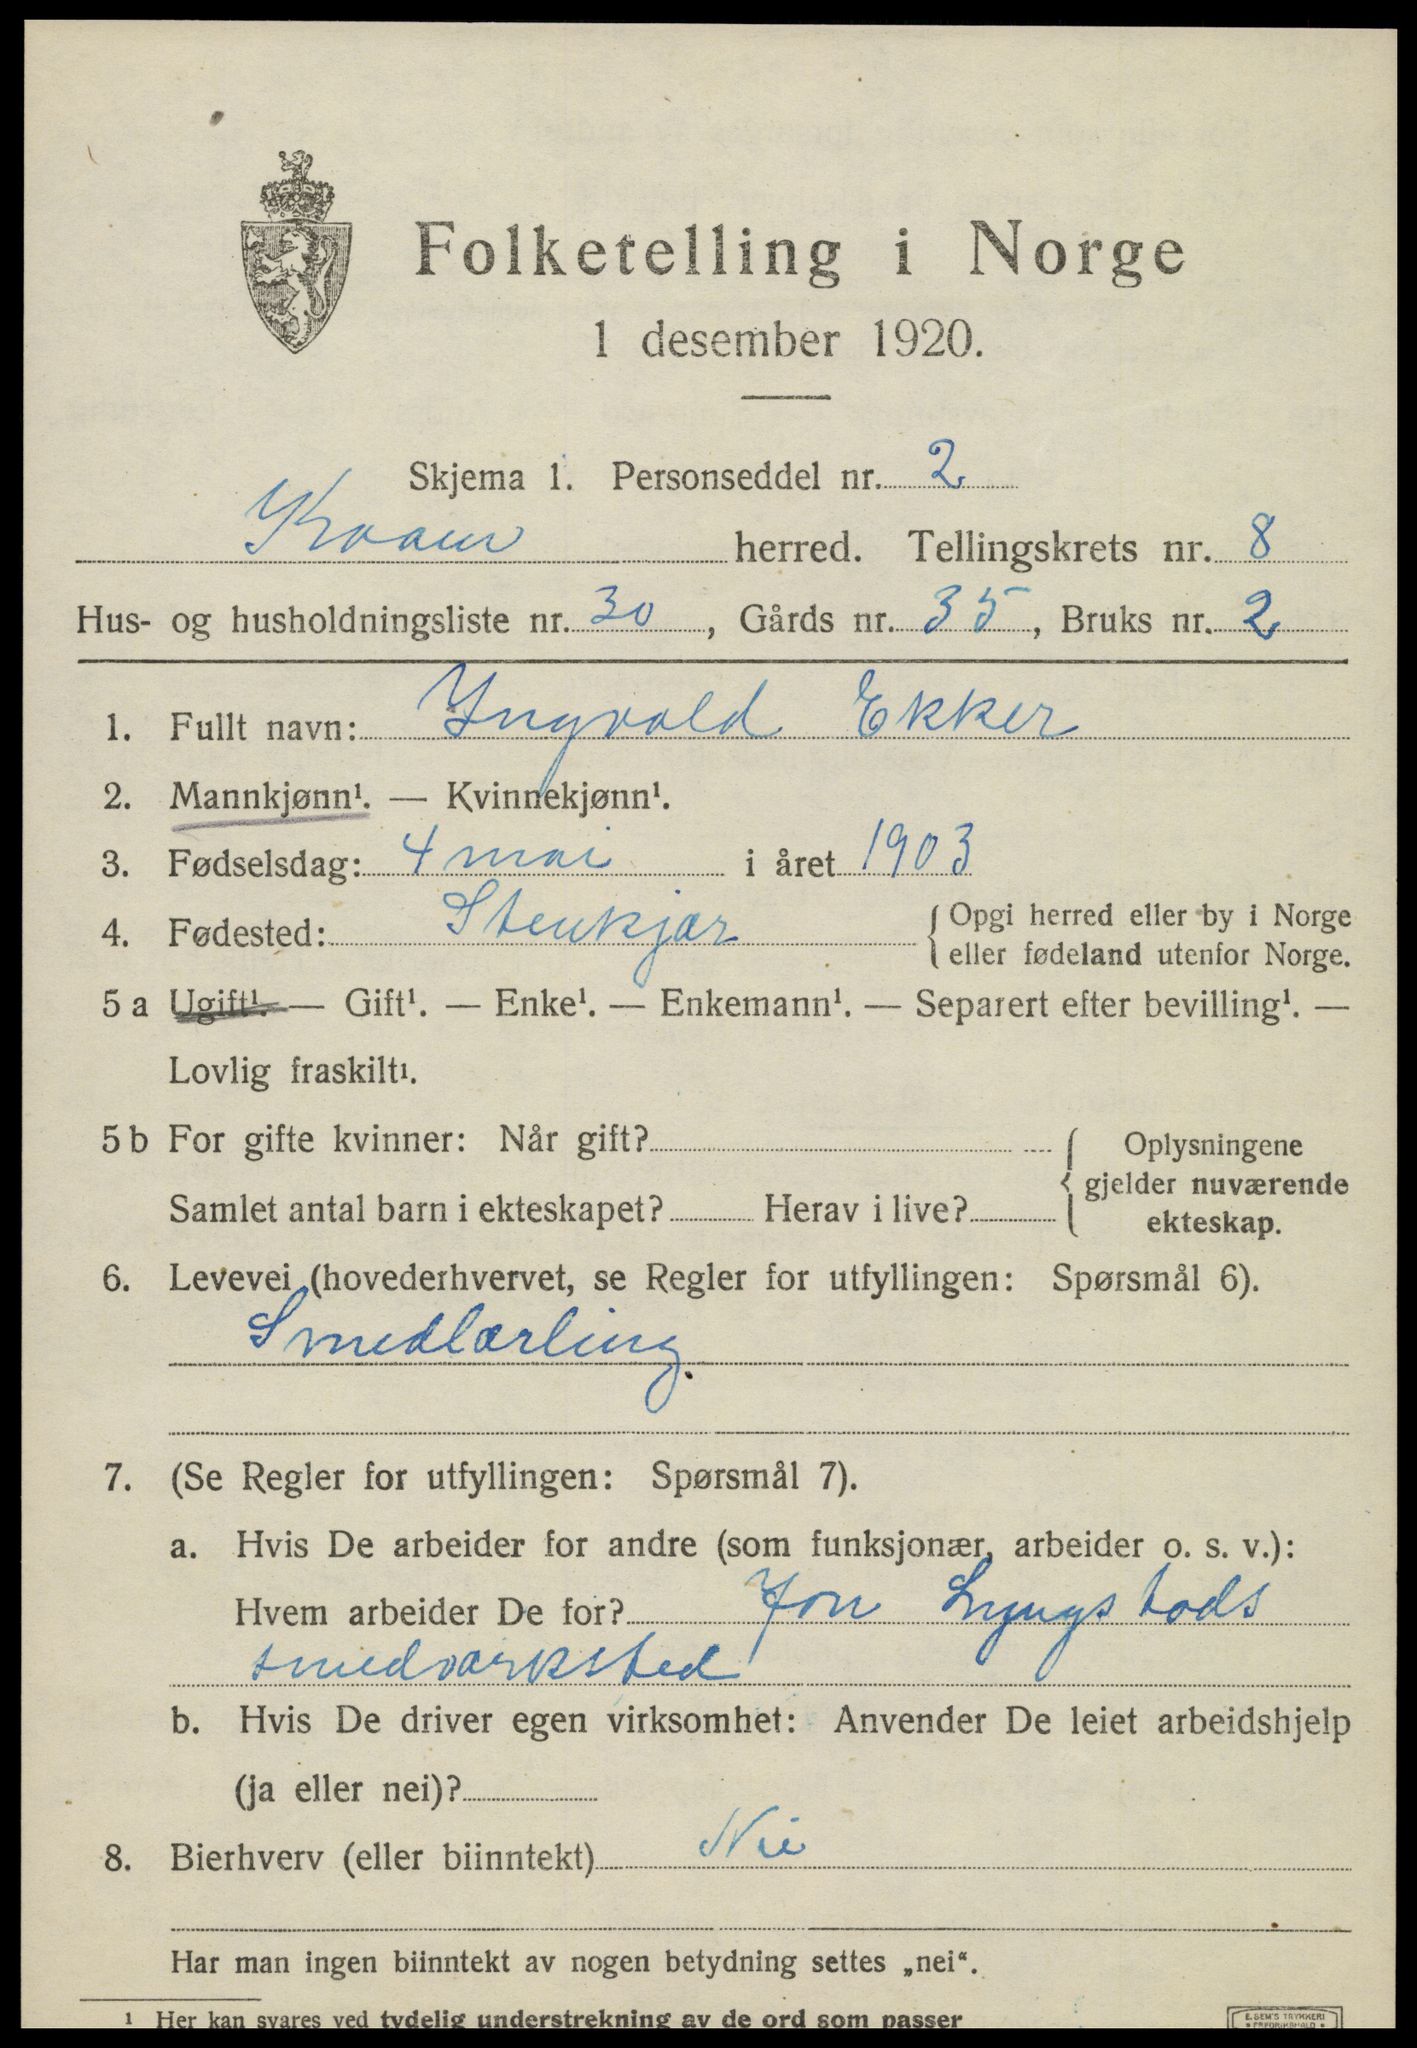 Folketelling i Norge
1 desember 1920.
Skjema 1. Personseddel nr. 2
Kvam herred. Tellingskrets nr. 8
Hus- og husholdningsliste nr. 30, Gårds nr. 35, Bruks nr. 2
1. Fullt navn: Yngvald Ekker
2. Mannkjønn¹. — Kvinnekjønn¹.
3. Fødselsdag: 4 mai i året 1903
4. Fødested: Stenkjær { Opgi herred eller by i Norge
eller fødeland utenfor Norge.
5 a Ugift¹. — Gift¹. — Enke¹. — Enkemann¹. — Separert efter bevilling¹. —
Lovlig fraskilt¹.
5 b For gifte kvinner: Når gift? { Oplysningene
gjelder nuværende
Samlet antal barn i ekteskapet? Herav i live? ekteskap.
6. Levevei (hovederhvervet, se Regler for utfyllingen: Spørsmål 6).
Smedlærling.
7. (Se Regler for utfyllingen: Spørsmål 7).
a. Hvis De arbeider for andre (som funksjonær, arbeider o. s. v.):
Hvem arbeider De for? Jon Lyngstads
smedværksted
b. Hvis De driver egen virksomhet: Anvender De leiet arbeidshjelp
(ja eller nei)?
8. Bierhverv (eller biinntekt) Nie
Har man ingen biinntekt av nogen betydning settes „nei“.
¹ Her kan svares ved tydelig understrekning av de ord som passer
E. SEM'S TRYKKERI
FREDRIKSHALD